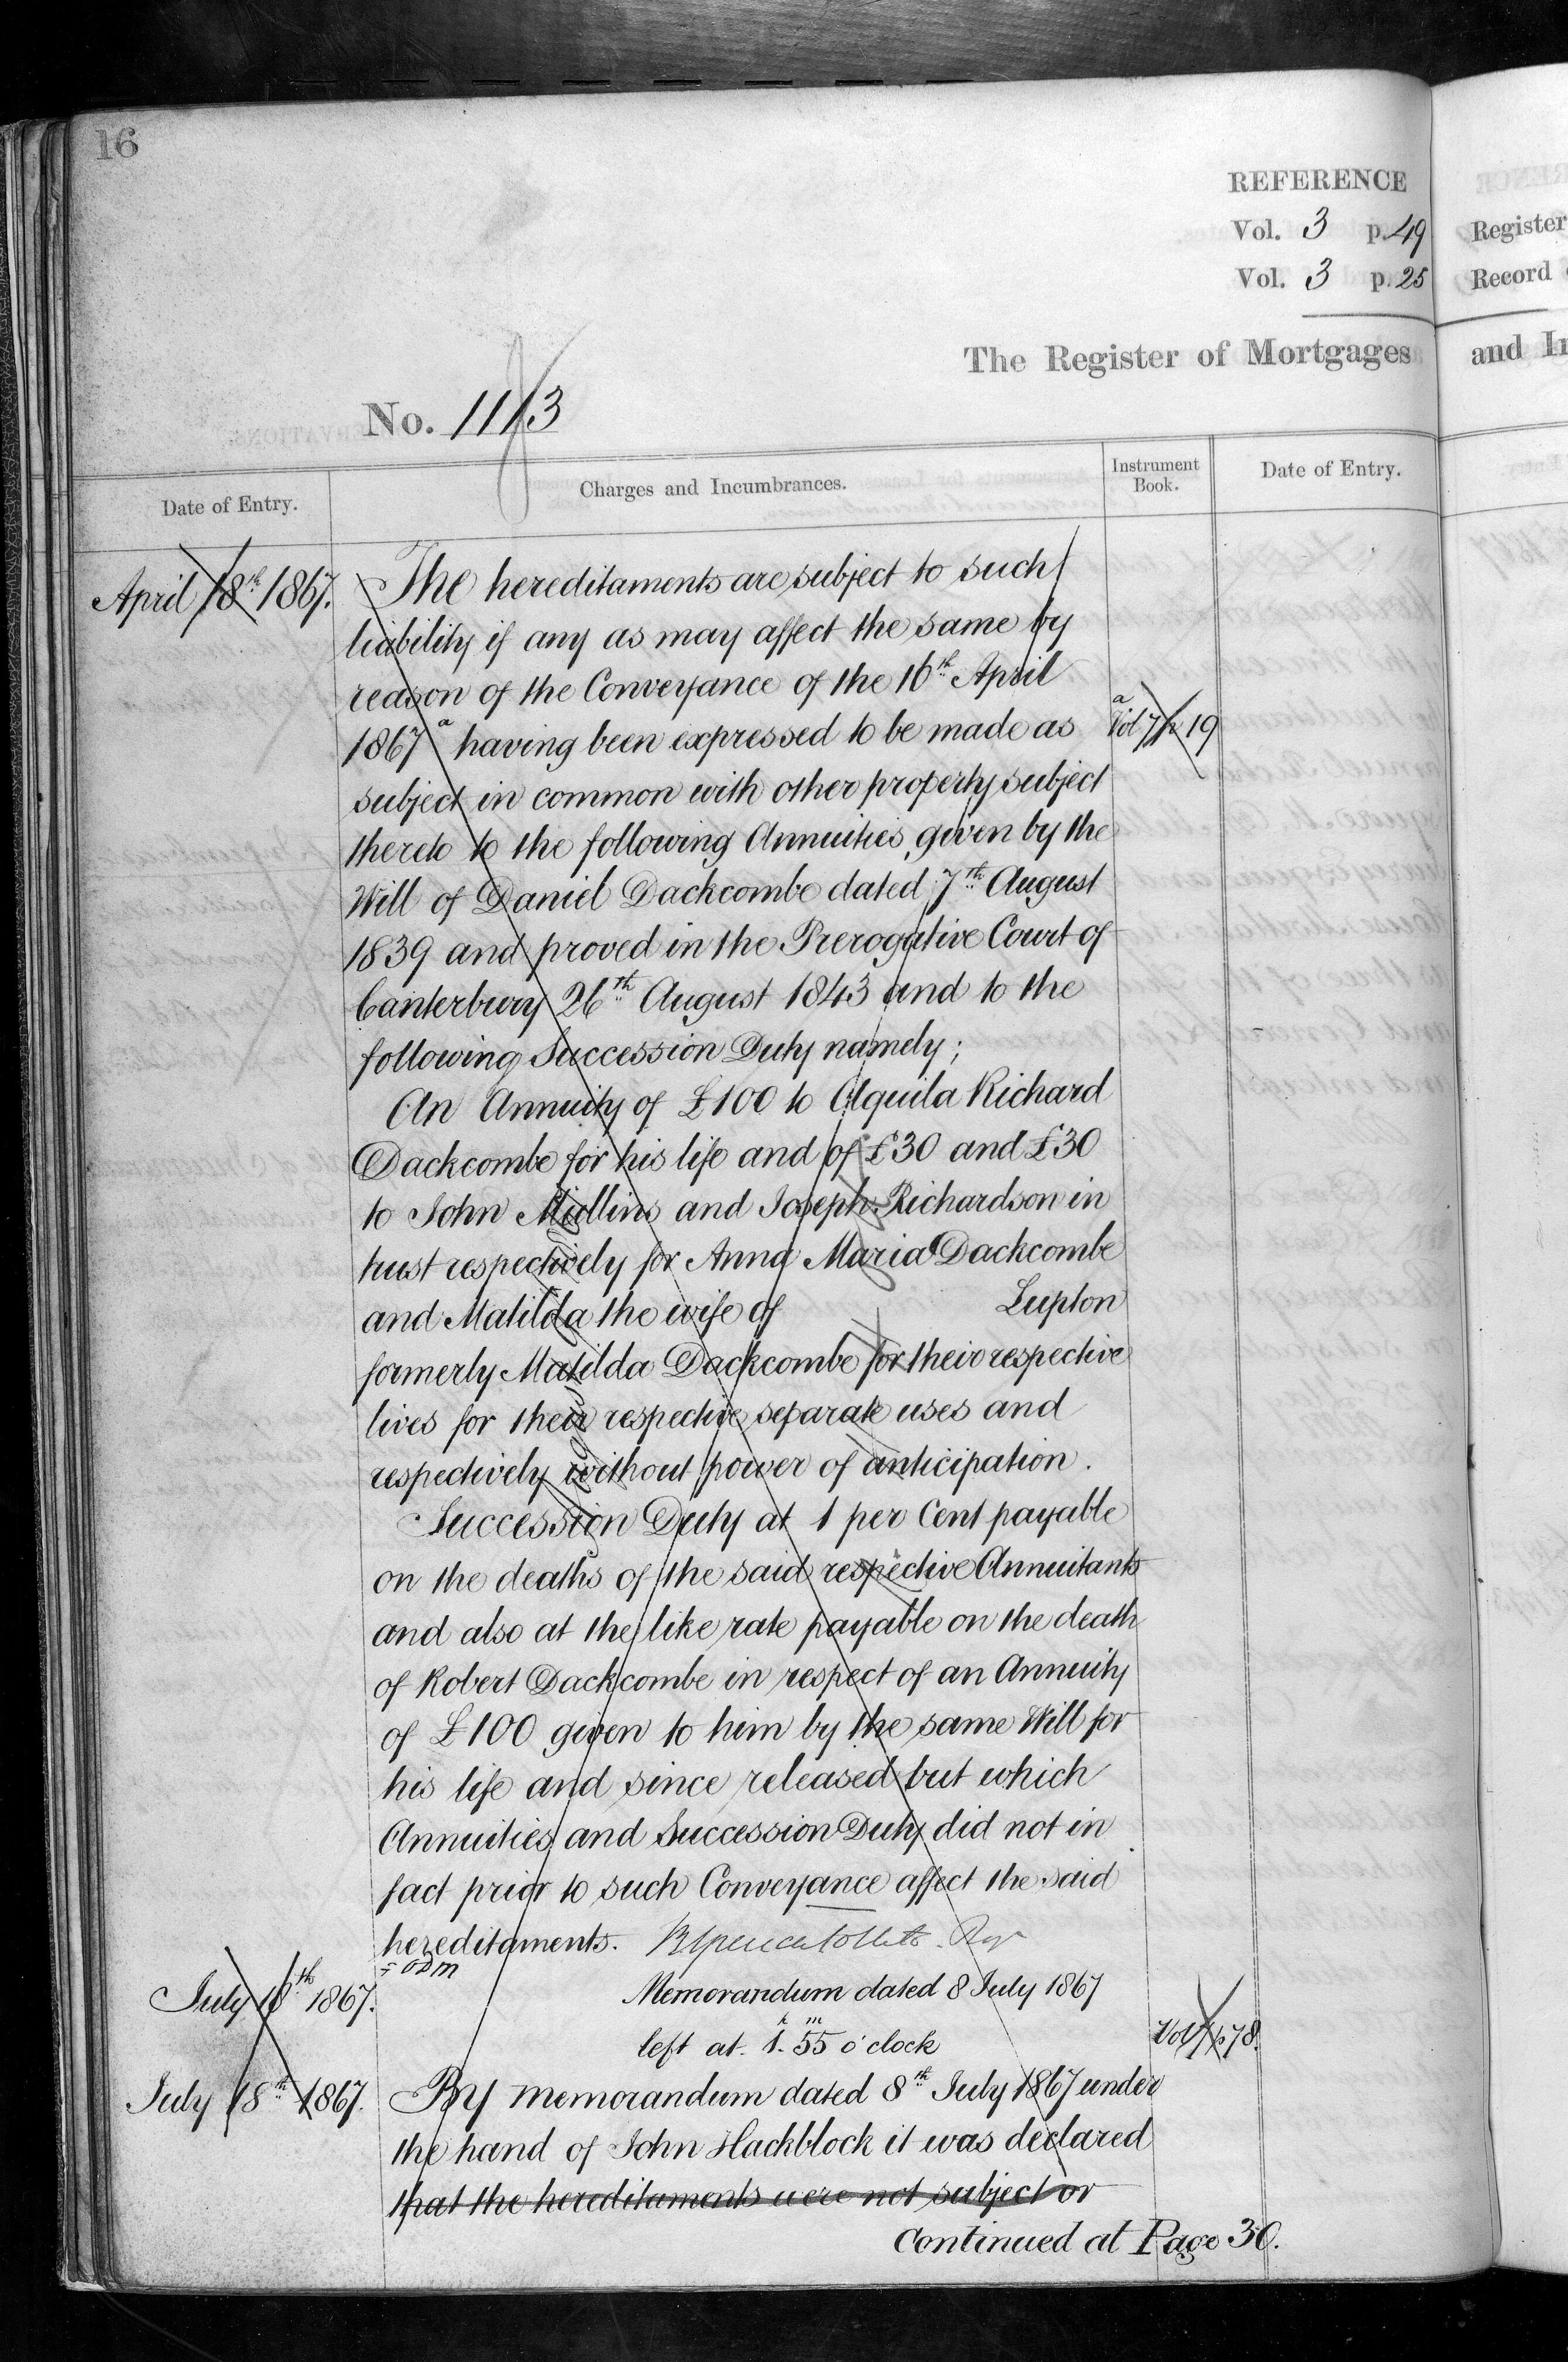 16
REFERENCE
Vol. 3 p. 49
Vol. 3 p. 25
Register
Record
The Register of Mortgages
and In
No. 1113
Date of Entry.
Charges and Incumbrances.
Instrument
Book.
Date of Entry.
April 18th 1867.
The hereditaments are subject to such
liability if any as may affect the same by
reason of the Conveyance of the 16th April
1867 a having been expressed to be made as
a
Vol 7 p 19
subject in common with other property subject
thereto to the following Annuities given by the
Will of Daniel Dackcombe dated 7th August
1839 and proved in the Prerogative Court of
Canterbury 26th August 1843 and to the
following Succession Duty namely;
An Annuity of £100 to Aquila Richard
Dackcombe for his life and of £30 and £30
to John Midlins and Joseph Richardson in
trust respectively for Anna Maria Dackcombe
and Matilda the wife of Lupton
formerly Matilda Dackcombe for their respective
lives for their respective separate uses and
respectively without power of anticipation.
Succession Duty at 1 per Cent payable
on the deaths of the said respective Annuitants
and also at the like rate payable on the death
of Robert Dackcombe in respect of an Annuity
of £100 given to him by the same Will for
his life and since released but which
Annuities and Succession Duty did not in
fact prior to such Conveyance affect the said
hereditaments.
July 18th 1867.
Memorandum dated 8 July 1867
left at 1h. 55m o'clock
Vol 7 p 78.
July 18th 1867.
By memorandum dated 8th July 1867 under
the hand of John Hackblock it was declared
that the hereditaments were not subject or
Continued at Page 30.